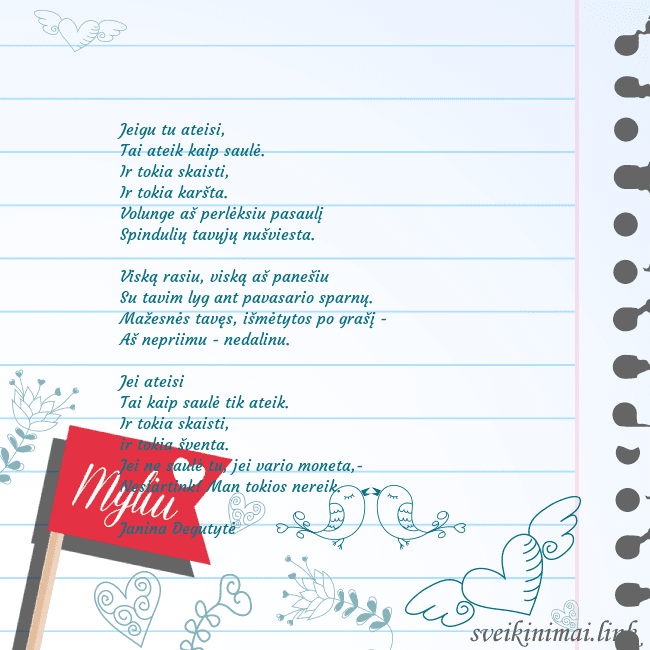 Jeigu tu ateisi,
Tai ateik kaip saulė.
Ir tokia skaisti,
Ir tokia karšta.
Volunge aš perlėksiu pasaulį
Spindulių tavųjų nušviesta.
Viską rasiu, viską aš panešiu
Su tavim lyg ant pavasario sparnų.
Mažesnės tavęs, išmėtytos po grašį -
Aš nepriimu - nedalinu.
Jei ateisi
Tai kaip saulė tik ateik.
Ir tokia skaisti,
ir tokia šventa.
Jei ne saulė tu, jei vario moneta,-
Nesiartink! Man tokios nereik.
Myliu
Janina Degutytė
sveikinimai.link